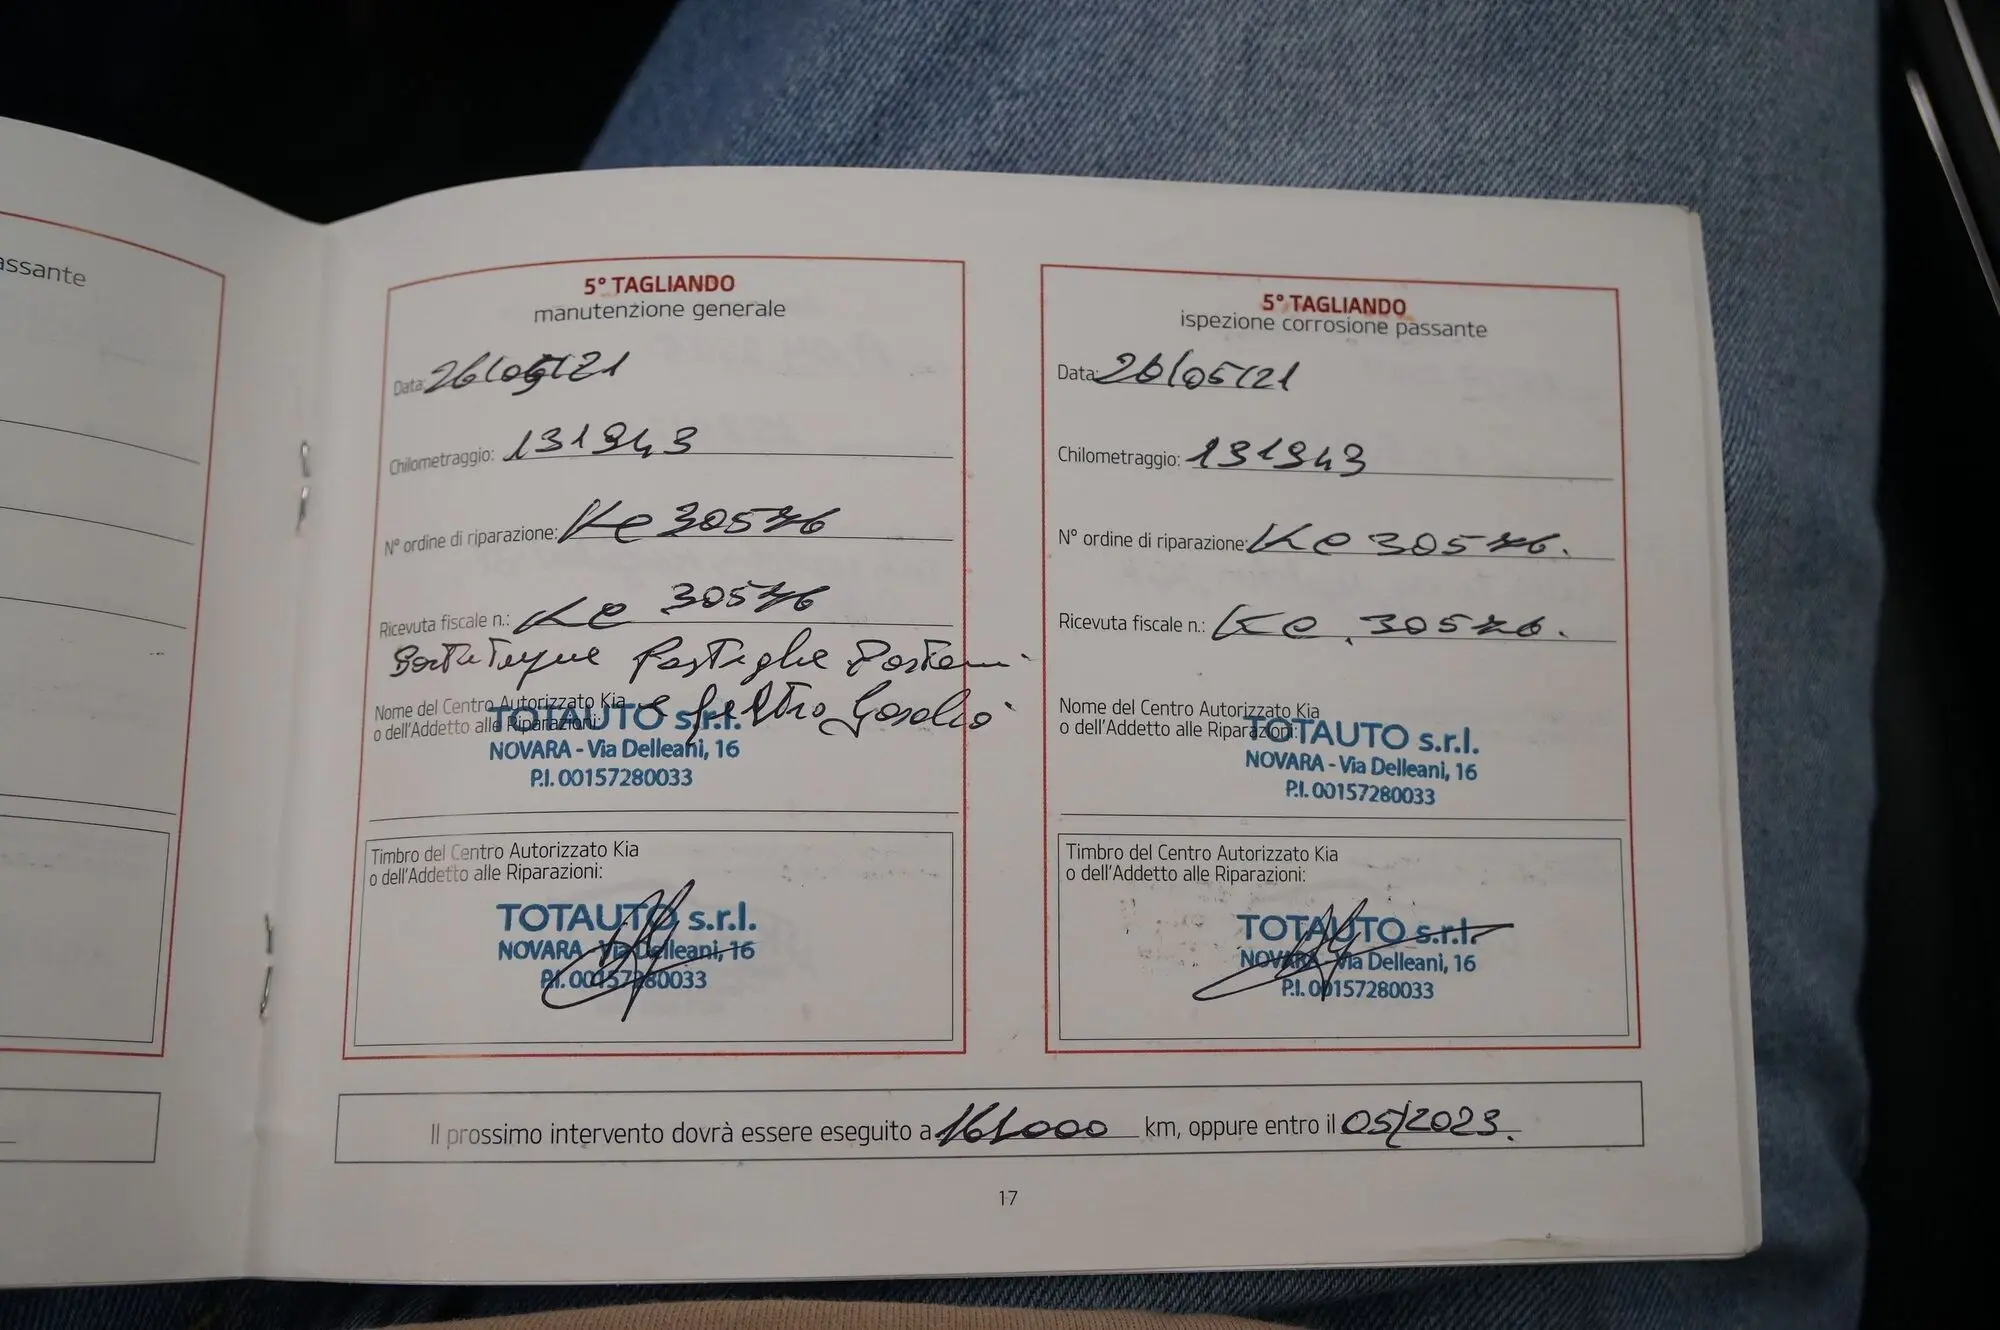 assante
5° TAGLIANDO
manutenzione generale
Data: 26/05/21
Chilometraggio: 131943
N° ordine di riparazione: KC 30576
Ricevuta fiscale n.: KC 30576
Pastiglie
Nome del Centro Autorizzato Kia
o dell'Addetto alle Riparazioni:
e filtro Gasolio
TOTAUTO s.r.l.
NOVARA - Via Delleani, 16
P.I. 00157280033
Timbro del Centro Autorizzato Kia
o dell'Addetto alle Riparazioni:
TOTAUTO s.r.l.
NOVARA - Via Delleani, 16
P.I. 00157280033
5° TAGLIANDO
ispezione corrosione passante
Data: 26/05/21
Chilometraggio: 131943
N° ordine di riparazione: KC 30576.
Ricevuta fiscale n.: KC. 30576.
Nome del Centro Autorizzato Kia
o dell'Addetto alle Riparazioni:
TOTAUTO s.r.l.
NOVARA - Via Delleani, 16
P.I. 00157280033
Timbro del Centro Autorizzato Kia
o dell'Addetto alle Riparazioni:
TOTAUTO s.r.l.
NOVARA - Via Delleani, 16
P.I. 00157280033
Il prossimo intervento dovrà essere eseguito a 161000 km, oppure entro il 05/2023.
17